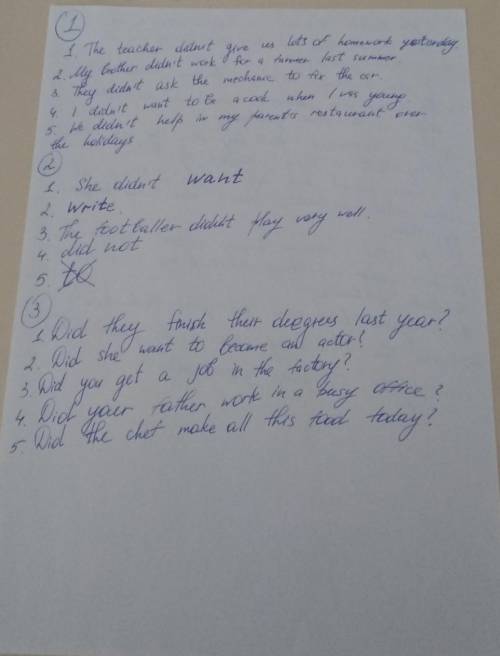 1
1. The teacher didn't give us lots of homework yesterday
2. My brother didn't work for a farmer last summer.
3. They didn't ask the mechanic to fix the car.
4. I didn't want to be a cook when I was young
5. We didn't help in my parent's restaurant over
the holidays
2
1. She didn't want
2. write.
3. The footballer didn't play very well.
4. did not
5. to
3
1. Did they finish their degrees last year?
2. Did she want to become an actor?
3. Did you get a job in the factory?
4. Did your father work in a busy office?
5. Did the chef make all this food today?